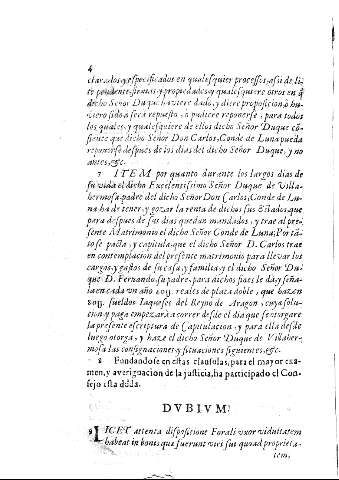 4
clarados, y especificados en qualesquier processos, assi de li-
te pendente, firmas, y propiedades, y qualesquiere otros en q̃
dicho Señor Duque huviere dado, y diere proposicion, ò hu-
viere sido, ò sera repuesto, o pudiere reponerse, para todos
los quales, y qualesquiere de ellos dicho Señor Duque cõ-
siente que dicho Señor Don Carlos, Conde de Luna pueda
reponerse despues de los dias del dicho Señor Duque, y no
antes, &c.
7 ITEM por quanto durante los largos dias de
su vida el dicho Excelentissimo Señor Duque de Villa-
hermosa, padre del dicho Señor Don Carlos, Conde de Lu-
na ha de tener, y gozar la renta de dichos sus Estados, que
para despues de sus dias quedan mandados, y trae al pre-
sente Matrimonio el dicho Señor Conde de Luna; Por tã-
to se pacta, y capitula, que el dicho Señor D. Carlos trae
en contemplacion del presente matrimonio para llevar los
cargos, y gastos de su casa, y familia, y el dicho Señor Du-
que D. Fernando su padre, para dichos fines le da, y seña-
la en cada un año 20 reales de plata doble, que hazen
sueldos Iaqueses del Reyno de Aragon, cuya solu-
cion, y paga empezarà a correr desde el dia que se otorgare
la presente escriptura de Capitulacion, y para ella desde
luego otorga, y haze el dicho Señor Duque de Villaher-
mosa las consignaciones, y situaciones siguientes, &c.
8 Fundandose en estas clausulas, para el mayor exa-
men, y averiguacion de la justicia, ha participado el Con-
sejo esta duda.
DVBIVM.
9 LICET attenta dispositione Forali uxor viduitatem
habeat in bonis quæ fuerunt viri sui quoad proprieta-
tem,